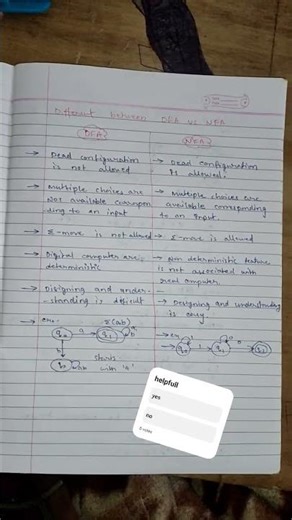 Different between DFA vs NFA
DFA
→ Dead configuration
is not allowed
→ Multiple choices are
Not available correspon
ding to an input
→ ε-move is not allowed
→ Digital computer are
deterministic
→ Disigning and under-
standing is difficult
→ exe. Σ(ab)
q0 a q1
starts
with 'a'
NFA
→ Dead configuration
is allowed.
→ Multiple choices are
available corresponding
to an input.
→ ε-move is allowed
→ Non deterministic feature
is not associated with
real computer.
→ Designing and understanding
is easy.
→ Ex
helpfull
yes
no